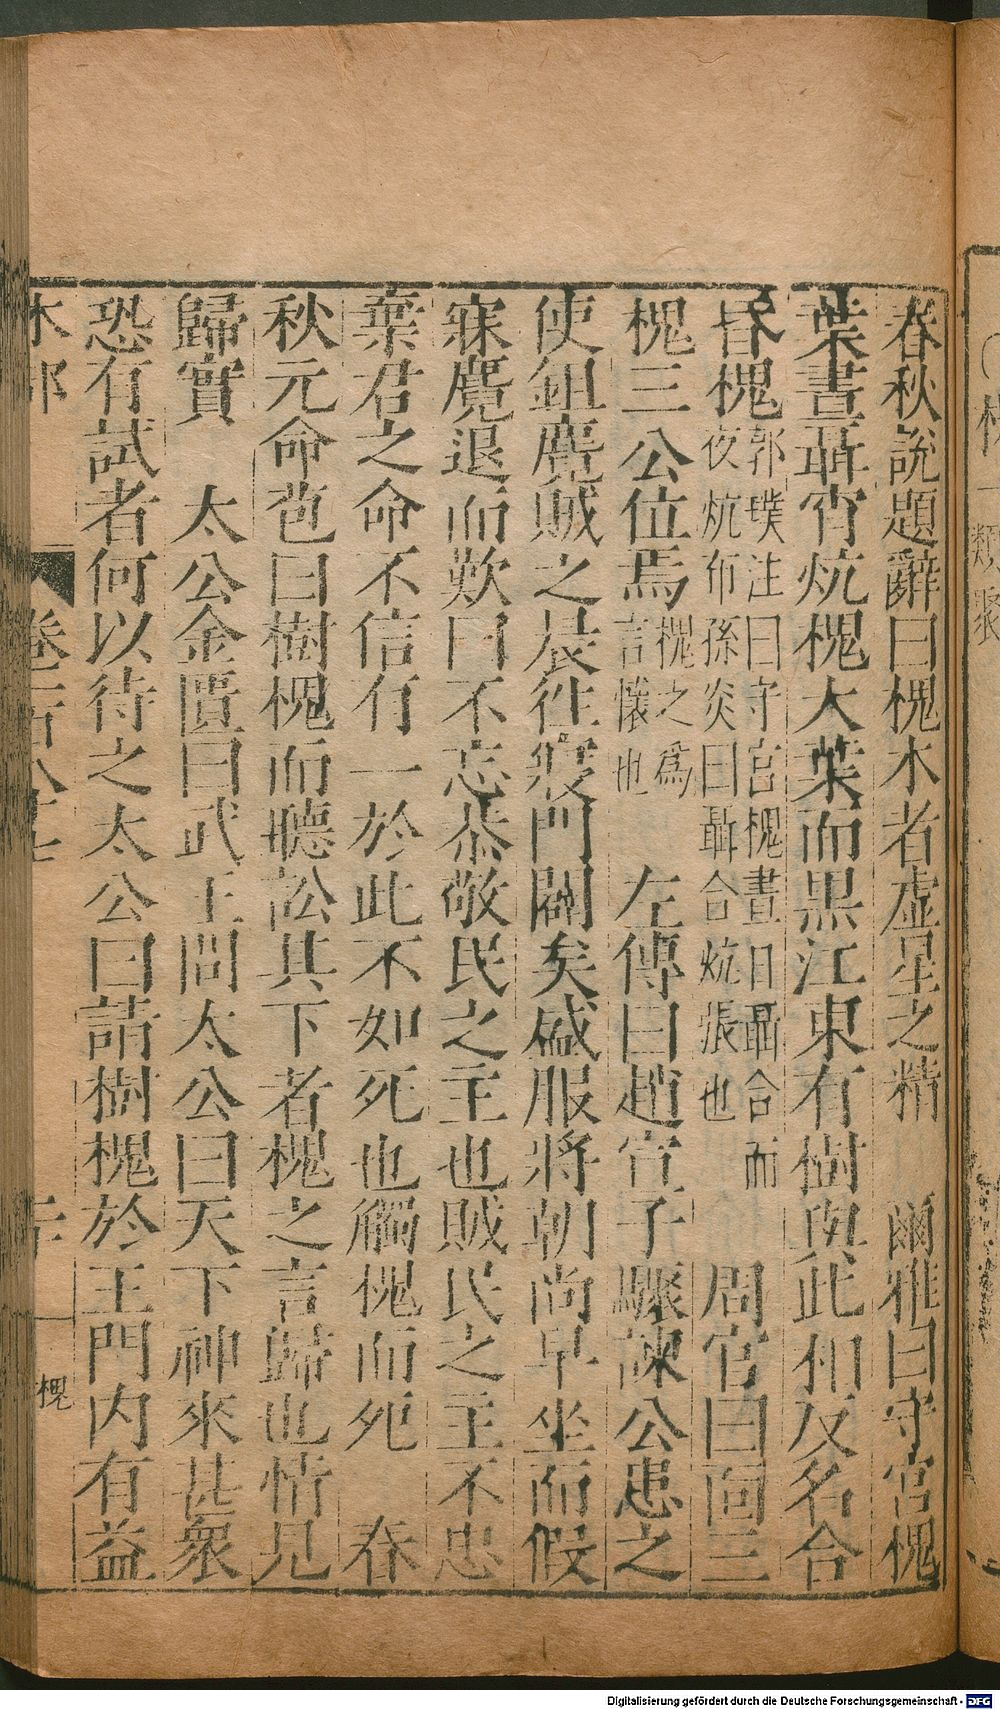 春秋說題辭曰槐木者虛星之精　爾雅曰守宮槐
葉晝聶宵炕槐大葉而黑江東有樹與此相反名合
昏槐郭璞注曰守宮槐晝日聶合而夜炕布孫炎曰聶合炕張也　周官曰面三
槐三公位焉槐之為言懷也　左傳曰趙宣子驟諫公患之
使鉏麑賊之晨往寢門闢矣盛服將朝尚早坐而假
寐麑退而歎曰不忘恭敬民之主也賊民之主不忠
棄君之命不信有一於此不如死也觸槐而死　春
秋元命苞曰樹槐而聽訟其下者槐之言歸也情見
歸實　太公金匱曰武王問太公曰天下神來甚衆
恐有試者何以待之太公曰請樹槐於王門內有益
木部　卷一百八十七　二十　槐
類聚
Digitalisierung gefördert durch die Deutsche Forschungsgemeinschaft - DFG